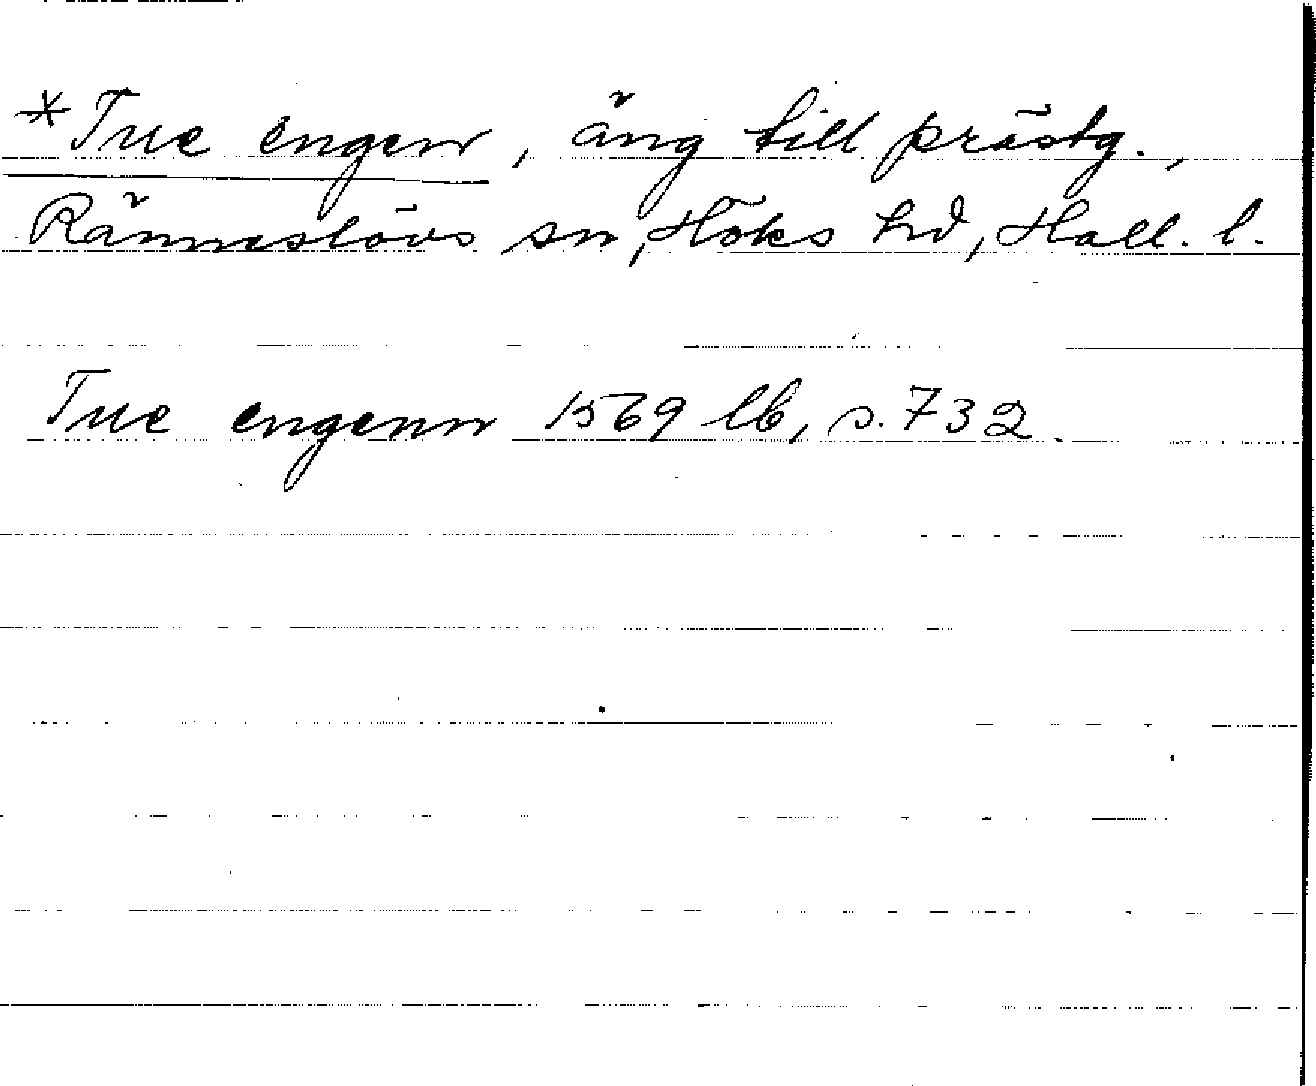 *Tue engen, äng till prästg.,
Ränneslövs sn, Höks hd, Hall. l.
Tue engenn 1569 lb, s. 732.